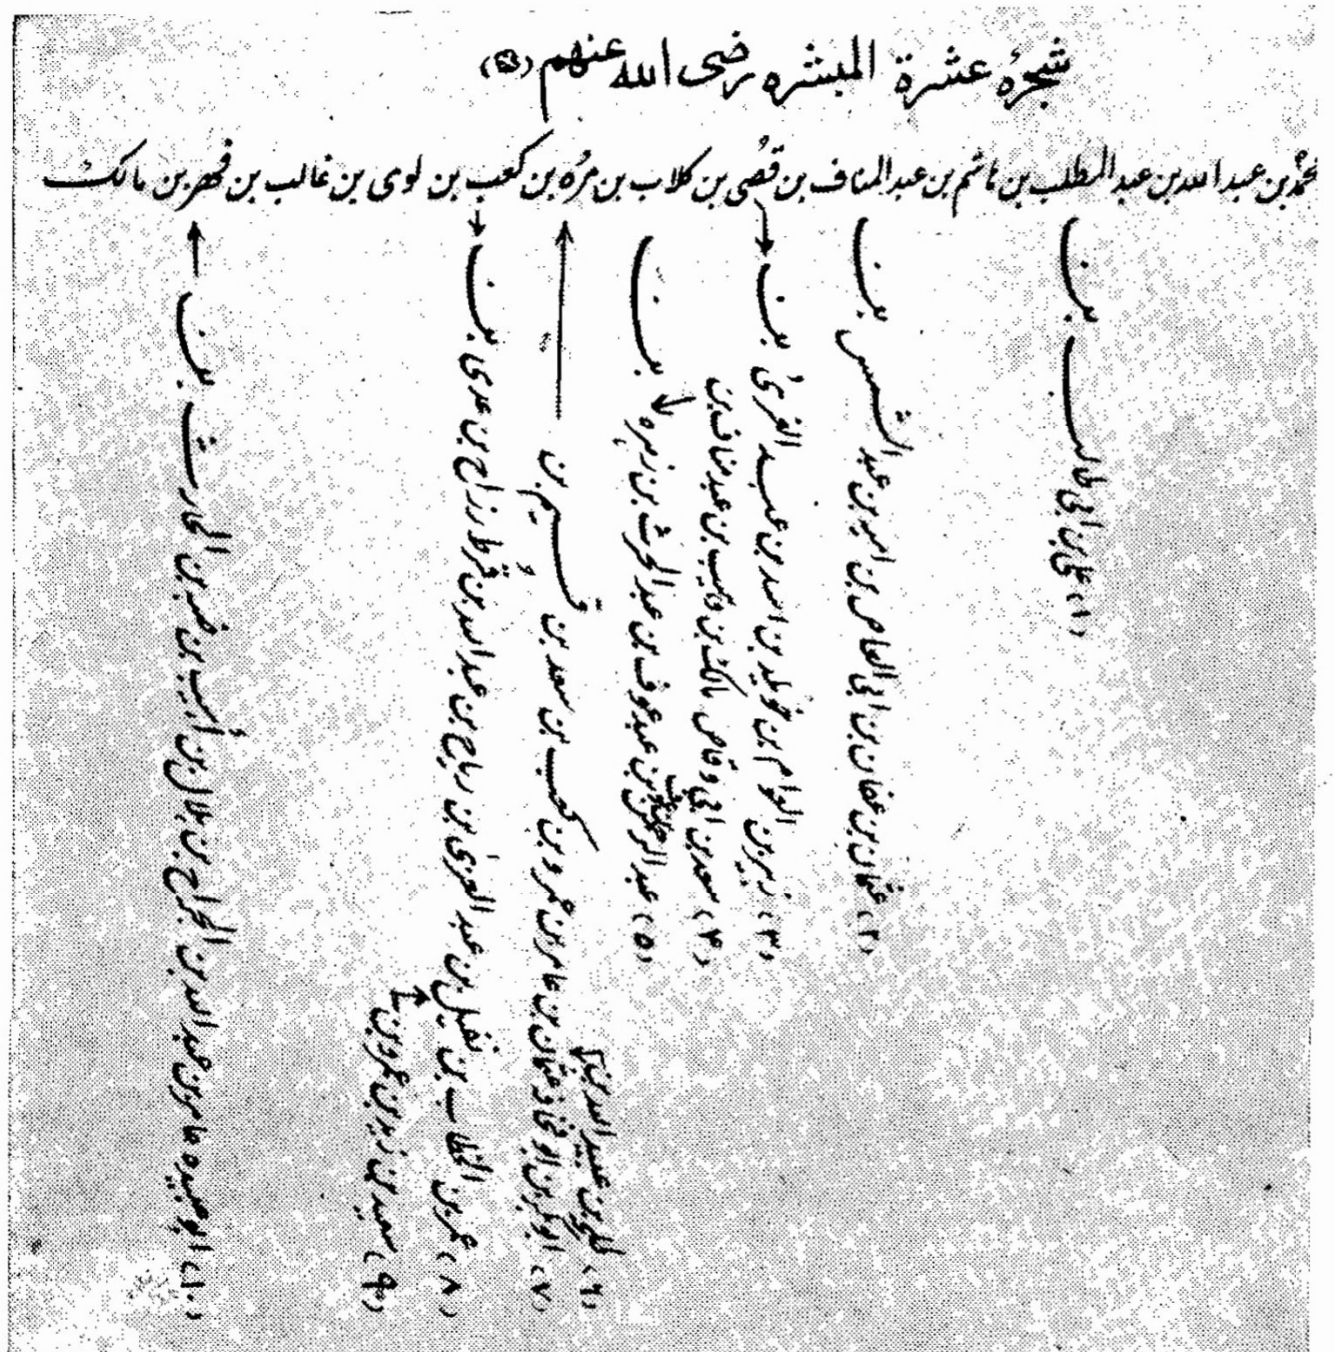 شجرۂ عشرۃ المبشرہ رضی اللہ عنہم
محمد بن عبد اللہ بن عبد المطلب بن ہاشم بن عبد المناف بن قصی بن کلاب بن مرہ بن کعب بن لوی بن غالب بن فہر بن مالک
(۱) علی بن ابی طالب بن
(۲) عثمان بن عفان بن ابی العاص بن امیہ بن عبد الشمس بن
(۳) زبیر بن العوام بن خویلد بن اسد بن عبد العزیٰ بن
(۴) سعد بن ابی وقاص مالک بن وہیب بن عبد مناف بن
(۵) عبد الرحمٰن بن عوف بن عبد عوف بن عبد الحرث بن زہرہ بن
(۶) طلحہ بن عبید اللہ بن
(۷) ابوبکر بن ابو قحافہ عثمان بن عامر بن عمرو بن کعب بن سعد بن تیم بن
(۸) عمر بن الخطاب بن نفیل بن عبد العزیٰ بن ریاح بن عبد اللہ بن قرط رزاح بن عدی بن
(۹) سعید بن زید بن عمرو بن
(۱۰) ابو عبیدہ عامر بن عبد اللہ بن الجراح بن ہلال بن اُہیب بن ضبہ بن الحارث بن